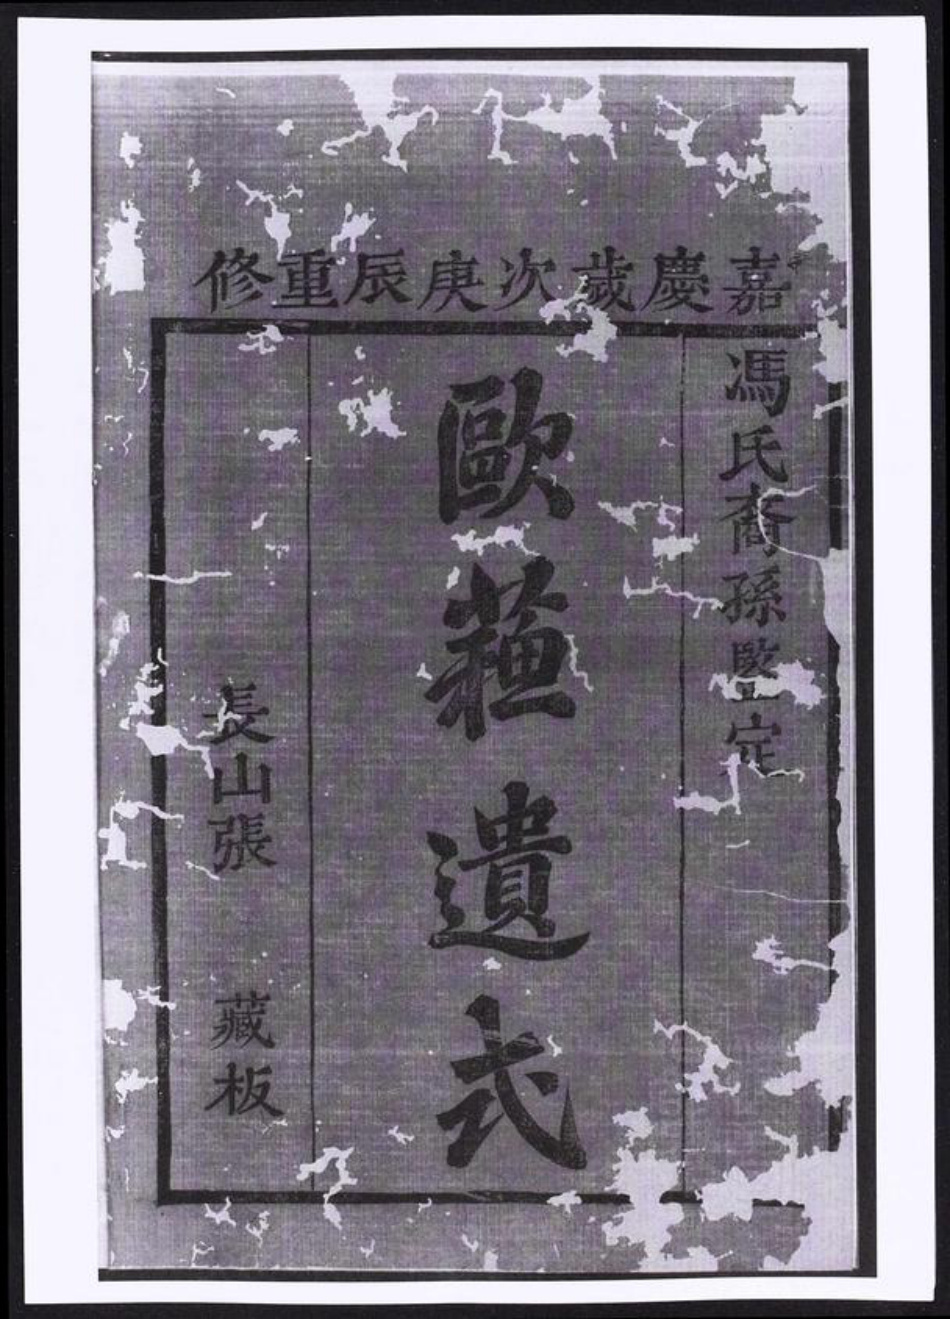 嘉慶歲次庚辰重修
馮氏裔孫監定
歐蘓遺式
長山張 藏板